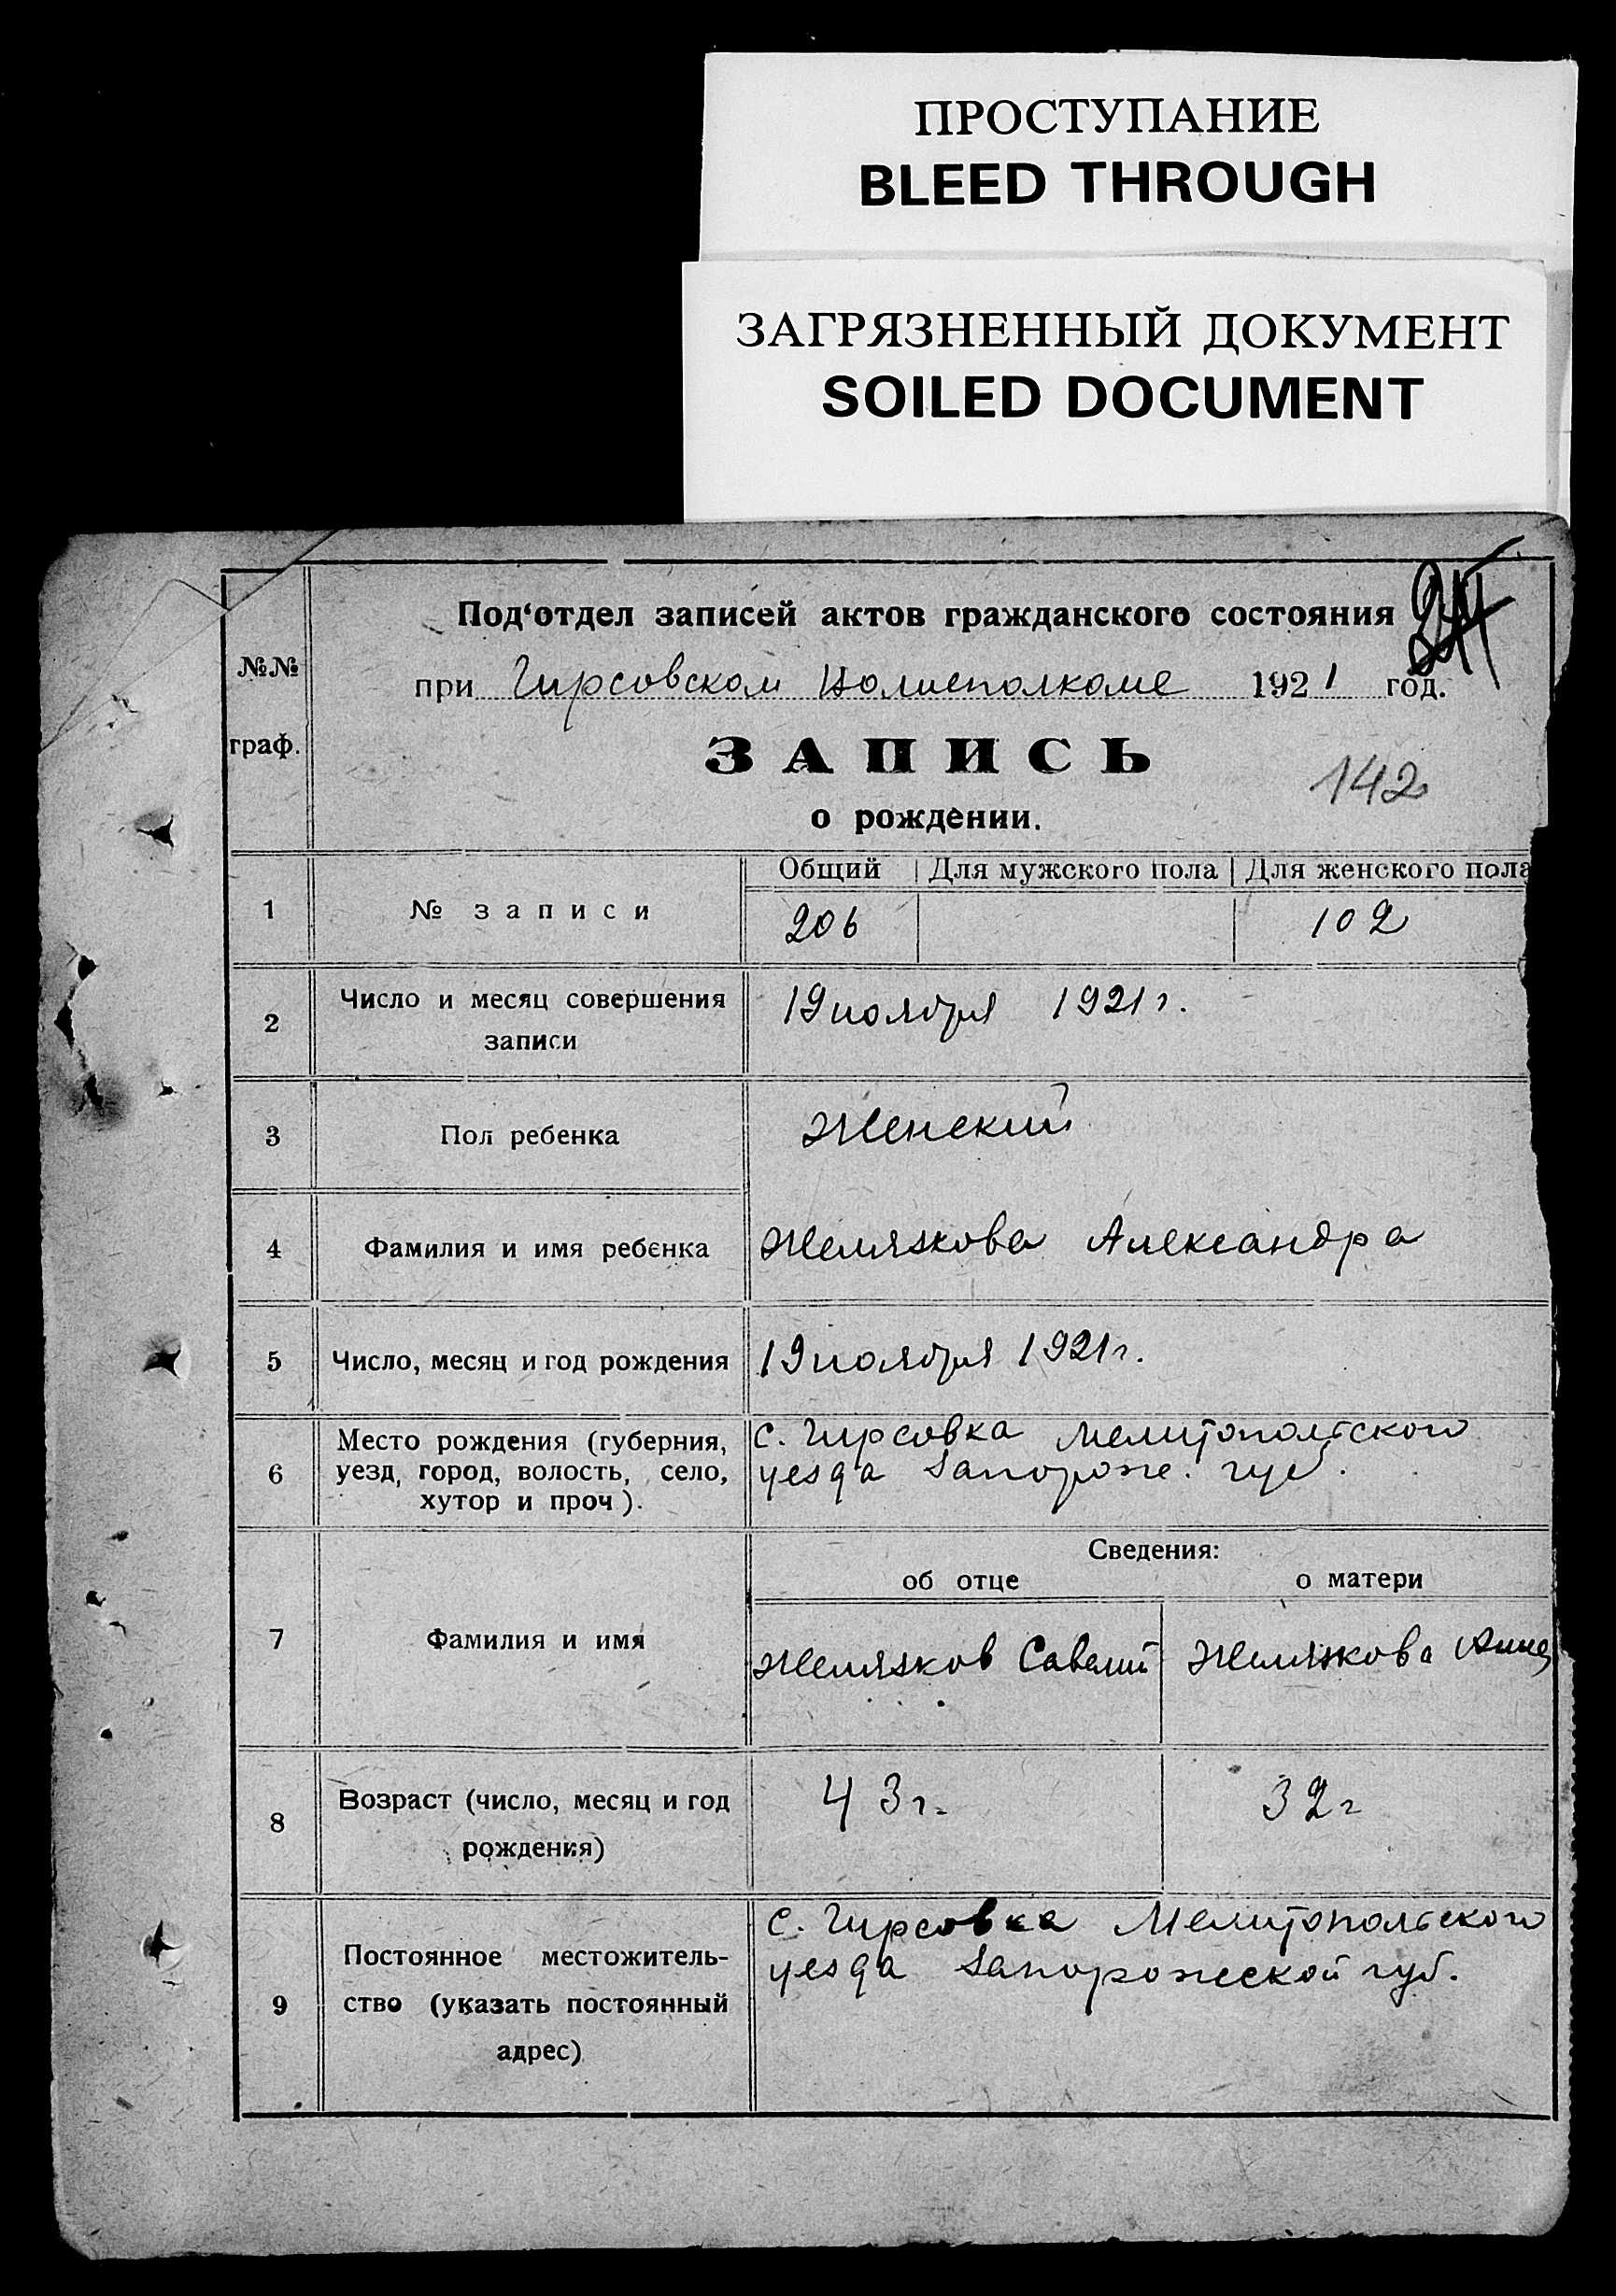 ПРОСТУПАНИЕ
BLEED THROUGH
ЗАГРЯЗНЕННЫЙ ДОКУМЕНТ
SOILED DOCUMENT
Под‘отдел записей актов гражданского состояния
при Гирсовском Волисполкоме 1921 год.
№№
граф.
ЗАПИСЬ
142
о рождении.
Общий Для мужского пола Для женского пола
1 № записи 206 102
2 Число и месяц совершения записи
19 ноября 1921 г.
3 Пол ребенка Женский
4 Фамилия и имя ребенка Желязкова Александра
5 Число, месяц и год рождения 19 ноября 1921 г.
6 Место рождения (губерния,
уезд, город, волость, село,
хутор и проч).
с. Гирсовка Мелитопольского
уезда Запорож. губ.
Сведения:
об отце о матери
7 Фамилия и имя Желязков Савелий Желязкова Анна
8 Возраст (число, месяц и год
рождения)
43 г. 32 г
9 Постоянное местожитель-
ство (указать постоянный
адрес)
с. Гирсовка Мелитопольского
уезда Запорожской губ.